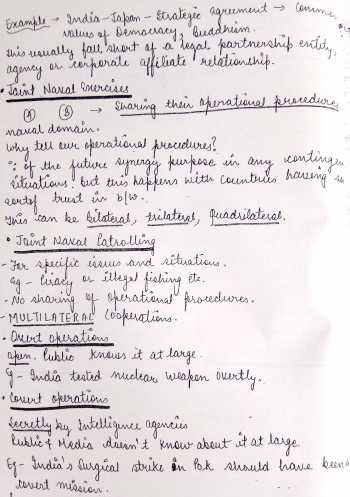 Example → India-Japan-Strategic agreement → Common
values of Democracy, Buddhism.
This usually fall short of a legal partnership entity,
agency or corporate affiliate relationship.
• Joint Naval Exercises
(A) (B) → Sharing their operational procedures
naval domain.
Why tell our operational procedures?
∵ of the future synergy purpose in any contingen
situations. but this happens with countries having s
sortof trust in b/w.
This can be bilateral, trilateral, Quadrilateral.
• Joint Naval Patrolling
- For specific issues and situations.
Eg - Piracy or illegal fishing etc.
- No sharing of operational procedures.
- MULTILATERAL Cooperations.
• Overt operations
open. Public knows it at large.
g - India tested nuclear weapon overtly.
• Covert operations
Secretly by Intelligence agencies
Public & Media doesn't know about it at large
Eg - India's Surgical strike in Pak should have been
covert mission.